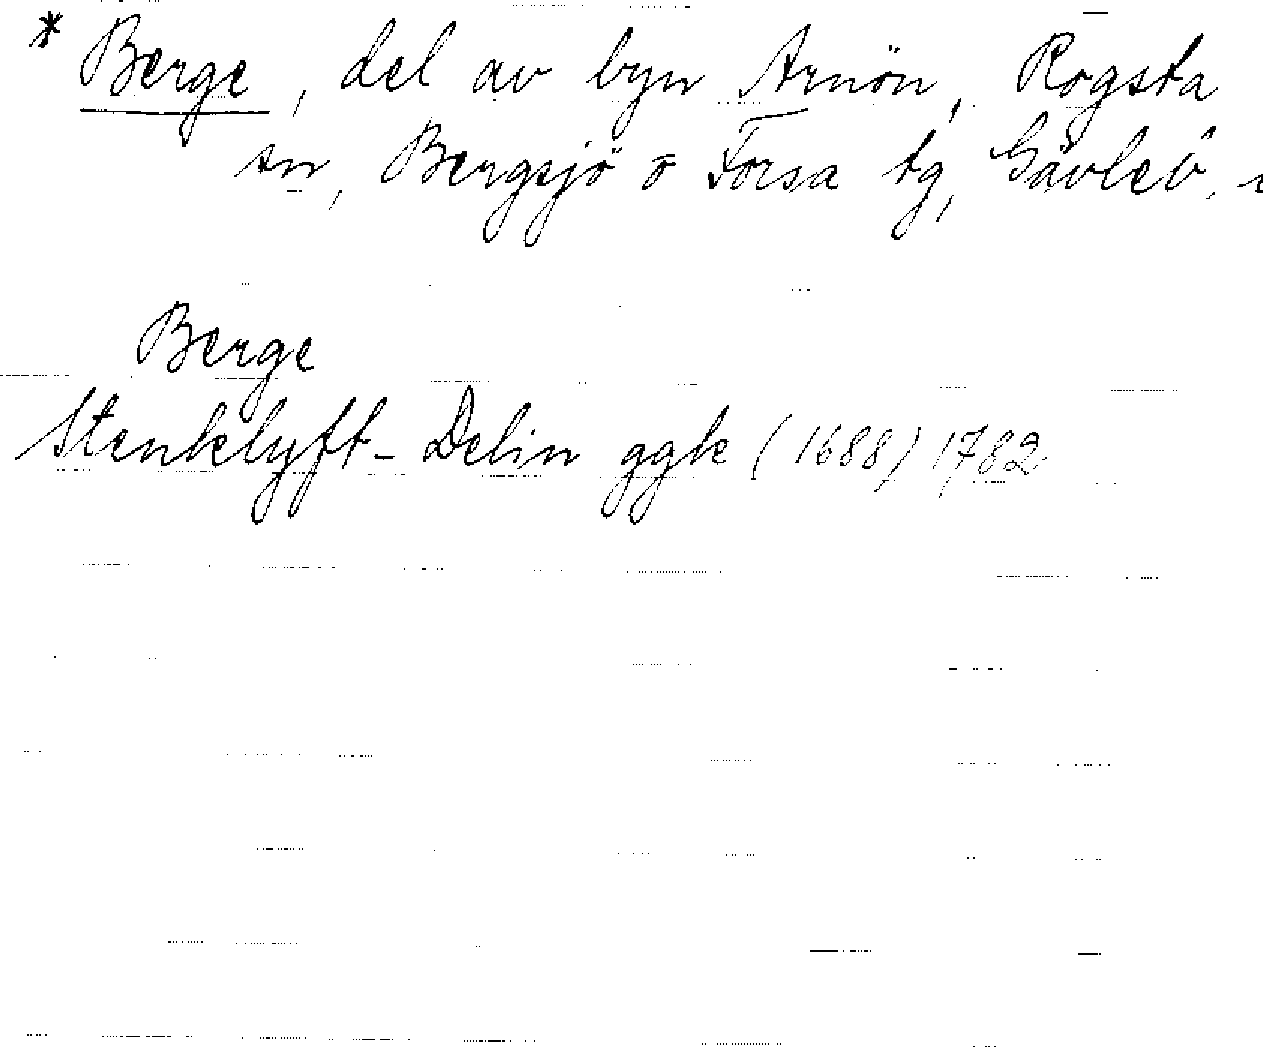 * Berge, del av byn Arnön, Rogsta
sn, Bergsjö o Forsa tg, Gävleb.
Berge
Stenklyft-Delin ggk (1688) 1782